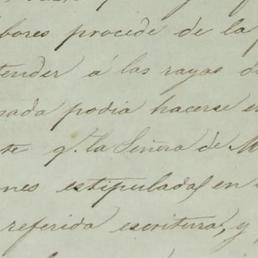 bores procede de la
tender á las rayas d
sada podia hacerse e
te q. la Señora de M
ones estipuladas en
referida escritura, y